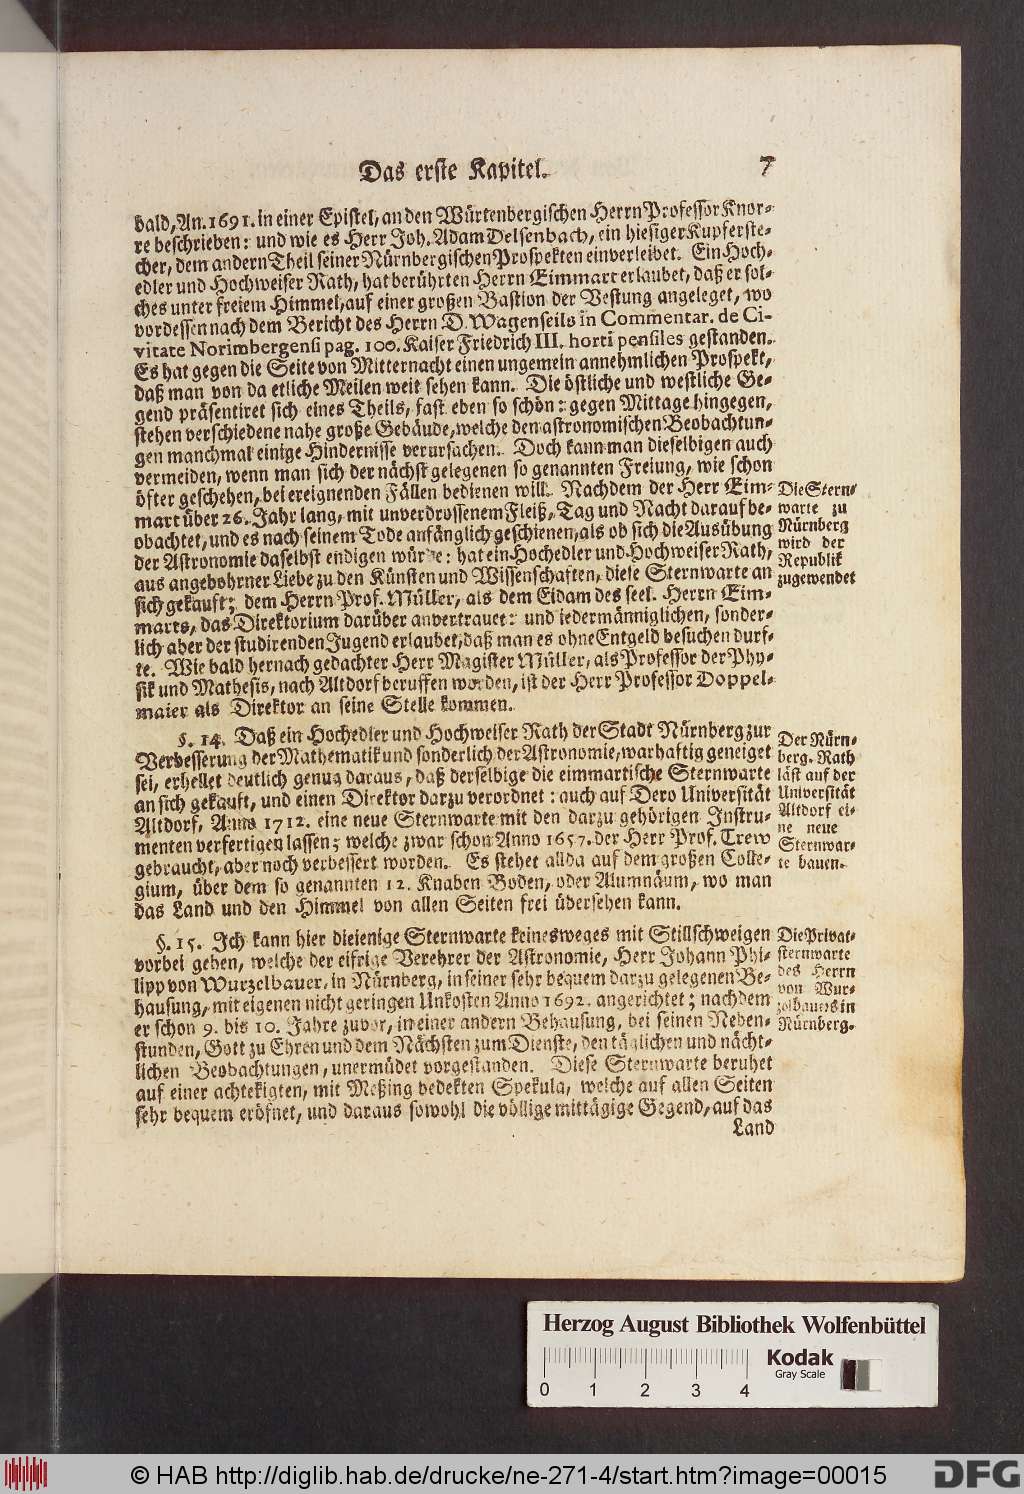 Das erste Kapitel. 7
bald, An. 1691. in einer Epistel, an den Würtenbergischen Herrn Professor Knor-
re beschrieben: und wie es Herr Joh. Adam Delsenbach, ein hiesiger Kupferste-
cher, dem andern Theil seiner Nürnbergischen Prospekten einverleibet. Ein Hoch-
edler und Hochweiser Rath, hat berührten Herrn Eimmart erlaubet, daß er sol-
ches unter freiem Himmel, auf einer großen Bastion der Vestung angeleget, wo
vordessen nach dem Bericht des Herrn D. Wagenseils in Commentar. de Ci-
vitate Norimbergensi pag. 100. Kaiser Friedrich III. horti pensiles gestanden.
Es hat gegen die Seite von Mitternacht einen ungemein annehmlichen Prospekt,
daß man von da etliche Meilen weit sehen kann. Die östliche und westliche Ge-
gend präsentiret sich eines Theils, fast eben so schön: gegen Mittage hingegen,
stehen verschiedene nahe große Gebäude, welche den astronomischen Beobachtun-
gen manchmal einige Hindernisse verursachen. Doch kann man dieselbigen auch
vermeiden, wenn man sich der nächst gelegenen so genannten Freiung, wie schon
öfter geschehen, bei ereignenden Fällen bedienen will. Nachdem der Herr Eim-
mart über 26. Jahr lang, mit unverdrossenem Fleiß, Tag und Nacht darauf be-
obachtet, und es nach seinem Tode anfänglich geschienen, als ob sich die Ausübung
der Astronomie daselbst endigen würde: hat ein Hochedler und Hochweiser Rath,
aus angebohrner Liebe zu den Künsten und Wissenschaften, diese Sternwarte an
sich gekauft; dem Herrn Prof. Müller, als dem Eidam des seel. Herrn Eim-
marts, das Direktorium darüber anvertrauet: und iedermänniglichen, sonder-
lich aber der studirenden Jugend erlaubet, daß man es ohne Entgeld besuchen durf-
te. Wie bald hernach gedachter Herr Magister Müller, als Professor der Phy-
sik und Mathesis, nach Altdorf beruffen worden, ist der Herr Professor Doppel-
maier als Direktor an seine Stelle kommen.
Die Stern-
warte zu
Nürnberg
wird der
Republik
zugewendet
§. 14. Daß ein Hochedler und Hochweiser Rath der Stadt Nürnberg zur
Verbesserung der Mathematik und sonderlich der Astronomie, warhaftig geneiget
sei, erhellet deutlich genug daraus, daß derselbige die eimmartische Sternwarte
an sich gekauft, und einen Direktor darzu verordnet: auch auf Dero Universität
Altdorf, Anno 1712. eine neue Sternwarte mit den darzu gehörigen Instru-
menten verfertigen lassen; welche zwar schon Anno 1657. der Herr Prof. Trew
gebraucht, aber noch verbessert worden. Es stehet allda auf dem großen Colle-
gium, über dem so genannten 12. Knaben Boden, oder Alumnäum, wo man
das Land und den Himmel von allen Seiten frei übersehen kann.
Der Nürn-
berg. Rath
läst auf der
Universität
Altdorf ei-
ne neue
Sternwar-
te bauen.
§. 15. Ich kann hier diejenige Sternwarte keinesweges mit Stillschweigen
vorbei gehen, welche der eifrige Verehrer der Astronomie, Herr Johann Phi-
lipp von Wurzelbauer, in Nürnberg, in seiner sehr bequem darzu gelegenen Be-
hausung, mit eigenen nicht geringen Unkosten Anno 1692. angerichtet; nachdem
er schon 9. bis 10. Jahre zuvor, in einer andern Behausung, bei seinen Neben-
stunden, Gott zu Ehren und dem Nächsten zum Dienste, den täglichen und nächt-
lichen Beobachtungen, unermüdet vorgestanden. Diese Sternwarte beruhet
auf einer achtekigten, mit Meßing bedekten Spekula, welche auf allen Seiten
sehr bequem eröfnet, und daraus sowohl die völlige mittägige Gegend, auf das
Land
Die Privat-
sternwarte
des Herrn
von Wur-
zelbauers in
Nürnberg.
Herzog August Bibliothek Wolfenbüttel
0 1 2 3 4
Kodak
Gray Scale
© HAB http://diglib.hab.de/drucke/ne-271-4/start.htm?image=00015
DFG